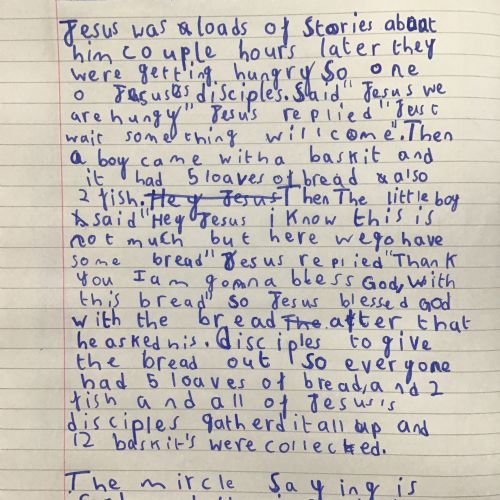 Jesus was & loads of Stories about
him couple hours later they
were getting hungry So one
o Jesus's disciples. Said" Jesus we
are hungy" Jesus replied "Just
wait something will come". Then
a boy came with a baskit and
it had 5 loaves of bread & also
2 fish. Hey Jesus Then The little boy
& said "Hey Jesus i know this is
not much but here we go have
some bread" Jesus replied "Thank
you I am gonna bless God, with
this bread" so Jesus blessed God
with the bread The. after that
he asked his. disciples to give
the bread out So everyone
had 5 loaves of bread, and 2
fish and all of Jesus's
disciples gatherd it all up and
12 baskit's were collected.
The mircle Saying is